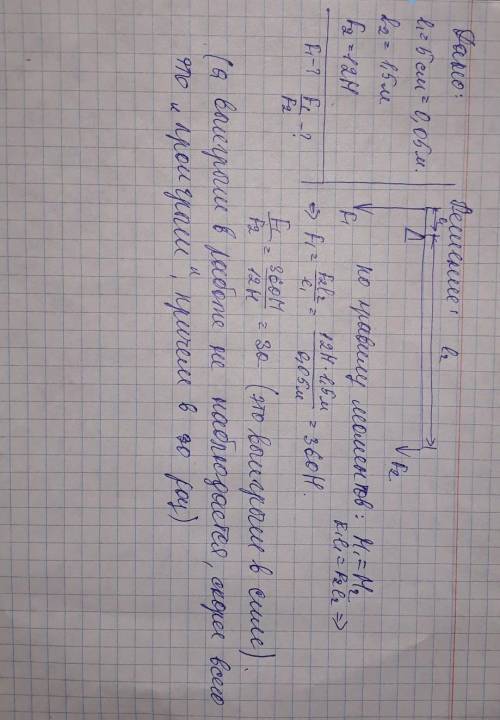 Дано:
l₁=5см=0,05м.
l₂=1,5м
F₂=12Н
F₁-? F₁/F₂-?
Решение:
l₁ l₂
F₁ F₂
по правилу моментов: M₁=M₂
F₁l₁=F₂l₂ =>
=> F₁ = F₂l₂/l₁ = 12Н·1,5м/0,05м = 360Н.
F₁/F₂ = 360Н/12Н = 30 (это выигрыш в силе).
(а выигрыш в работе не наблюдается, скорее всего
это "проигрыш", причем в 30 раз)